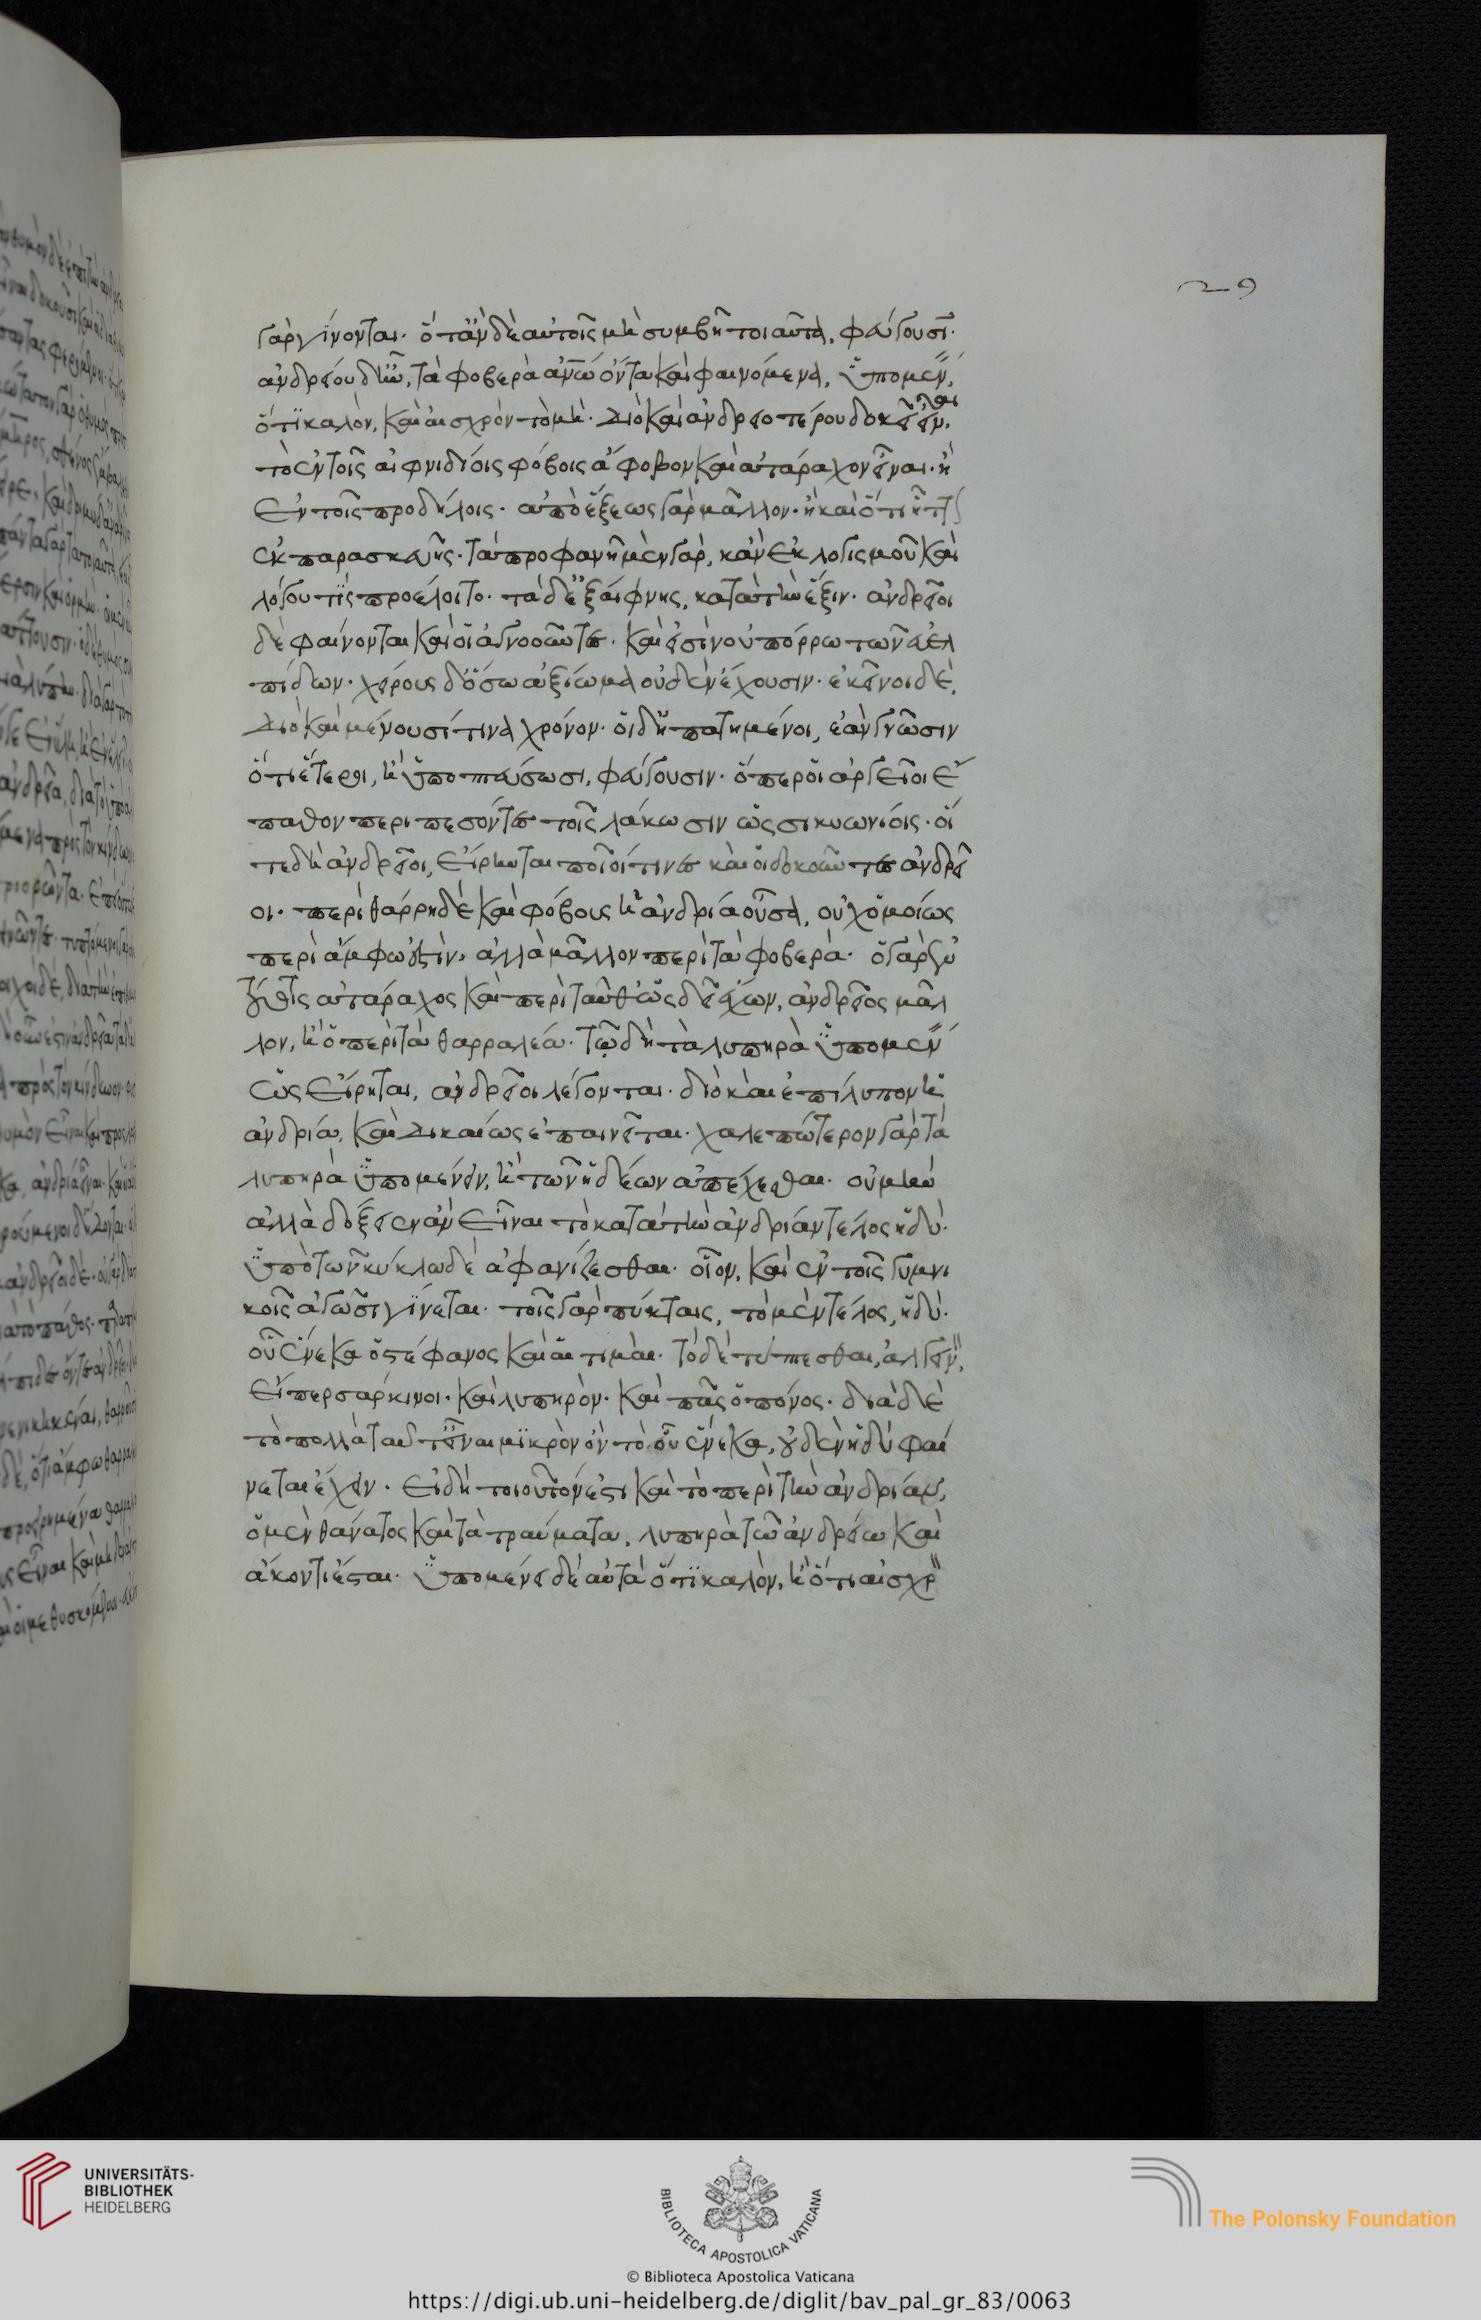 29
γὰρ γίνονται· ὅταν δὲ αὐτοῖς μὴ συμβῆ τοιαῦτα, φεύγουσι·
ἀνδρείου δ' ἦν, τὰ φοβερὰ ἀνθρώπω ὄντα καὶ φαινόμενα, ὑπομένειν,
ὅτι καλὸν, καὶ αἰσχρὸν τὸ μή· διὸ καὶ ἀνδρειοτέρου δοκεῖ εἶναι
τὸ ἐν τοῖς αἰφνιδίοις φόβοις ἄφοβον καὶ ἀτάραχον εἶναι· ἢ
ἐν τοῖς προδήλοις· ἀπὸ ἕξεως γὰρ μᾶλλον· ἢ καὶ ὅτι ἧττον
ἐκ παρασκευῆς· τὰ προφανῆ μὲν γὰρ, κἂν ἐκ λογισμοῦ καὶ
λόγου τὶς προέλοιτο· τὰ δ' ἐξαίφνης, κατὰ τὴν ἕξιν· ἀνδρεῖοι
δὲ φαίνονται καὶ οἱ ἀγνοοῦντες· καὶ εἰσὶν οὐ πόρρω τῶν εὐελ
πίδων· χείρους δ' ὅσω ἀξίωμα οὐδὲν ἔχουσιν· ἐκεῖνοι δέ,
διὸ καὶ μένουσί τινα χρόνον· οἱ δ' ἠπατημένοι, ἐὰν γνῶσιν
ὅτι ἕτεροι, ἢ ὑποπτεύσωσι, φεύγουσιν· ὅπερ οἱ ἀργεῖοι ἔ
παθον περιπεσόντες τοῖς λάκωσιν ὡς σικυωνίοις· οἵ
τε δὴ ἀνδρεῖοι, εἴρηνται ποῖοί τινες καὶ οἱ δοκοῦντες ἀνδρεῖ
οι· περὶ θάρρη δὲ καὶ φόβους ἡ ἀνδρία οὖσα, οὐχ ὁμοίως
περὶ ἄμφω ἐστὶν, ἀλλὰ μᾶλλον περὶ τὰ φοβερά· ὁ γὰρ ἐν
τούτοις ἀτάραχος καὶ περὶ ταῦθ' ὡς δεῖ ἔχων, ἀνδρεῖος μᾶλ
λον, ἢ ὁ περὶ τὰ θαρραλέα· τῷ δὴ τὰ λυπηρὰ ὑπομένειν
ὡς εἴρηται, ἀνδρεῖοι λέγονται· διὸ καὶ ἐπίλυπον ἡ
ἀνδρία, καὶ δικαίως ἐπαινεῖται· χαλεπώτερον γὰρ τὰ
λυπηρὰ ὑπομένειν, ἢ τῶν ἡδέων ἀπέχεσθαι· οὐ μὴν
ἀλλὰ δόξειεν ἂν εἶναι τὸ κατὰ τὴν ἀνδρίαν τέλος ἡδύ·
ὑπὸ τῶν κύκλω δὲ ἀφανίζεσθαι· οἷον, καὶ ἐν τοῖς γυμνι
κοῖς ἀγῶσι γίνεται· τοῖς γὰρ πύκταις, τὸ μὲν τέλος, ἡδύ·
οὗ ἕνεκα ὁ στέφανος καὶ αἱ τιμαί· τὸ δὲ τύπτεσθαι, ἀλγεινὸν,
εἴπερ σάρκινοι· καὶ λυπηρὸν· καὶ πᾶς ὁ πόνος· διὰ δὲ
τὸ πολλὰ ταῦτ' εἶναι μικρὸν ὂν τὸ οὗ ἕνεκα, οὐδὲν ἡδὺ φαί
νεται ἔχειν· εἰ δὴ τοιοῦτόν ἐστι καὶ τὸ περὶ τὴν ἀνδρίαν,
ὁ μὲν θάνατος καὶ τὰ τραύματα, λυπηρὰ τῶ ἀνδρείω καὶ
ἄκοντι ἔσται· ὑπομένει δὲ αὐτὰ ὅτι καλὸν, ἢ ὅτι αἰσχρὸν
UNIVERSITÄTS-
BIBLIOTHEK
HEIDELBERG
BIBLIOTECA APOSTOLICA VATICANA
The Polonsky Foundation
© Biblioteca Apostolica Vaticana
https://digi.ub.uni-heidelberg.de/diglit/bav_pal_gr_83/0063